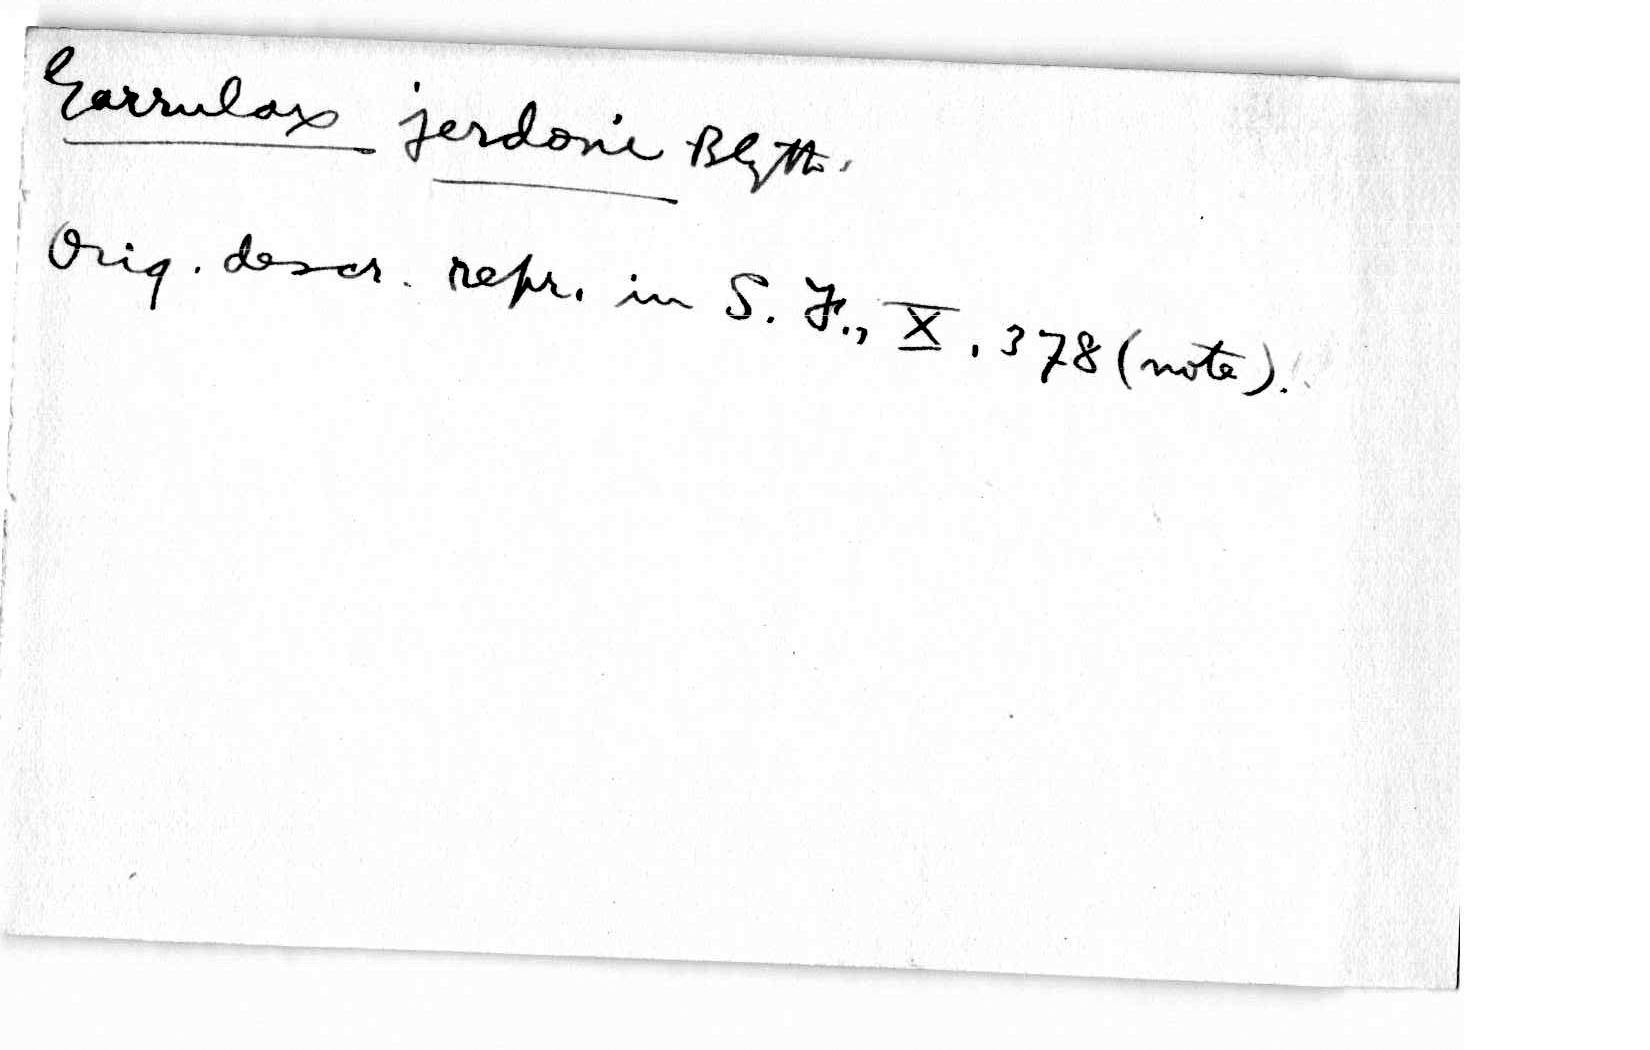 Garrulax jerdoni Blyth.
Orig. descr. repr. in S. F., X, 378 (note).